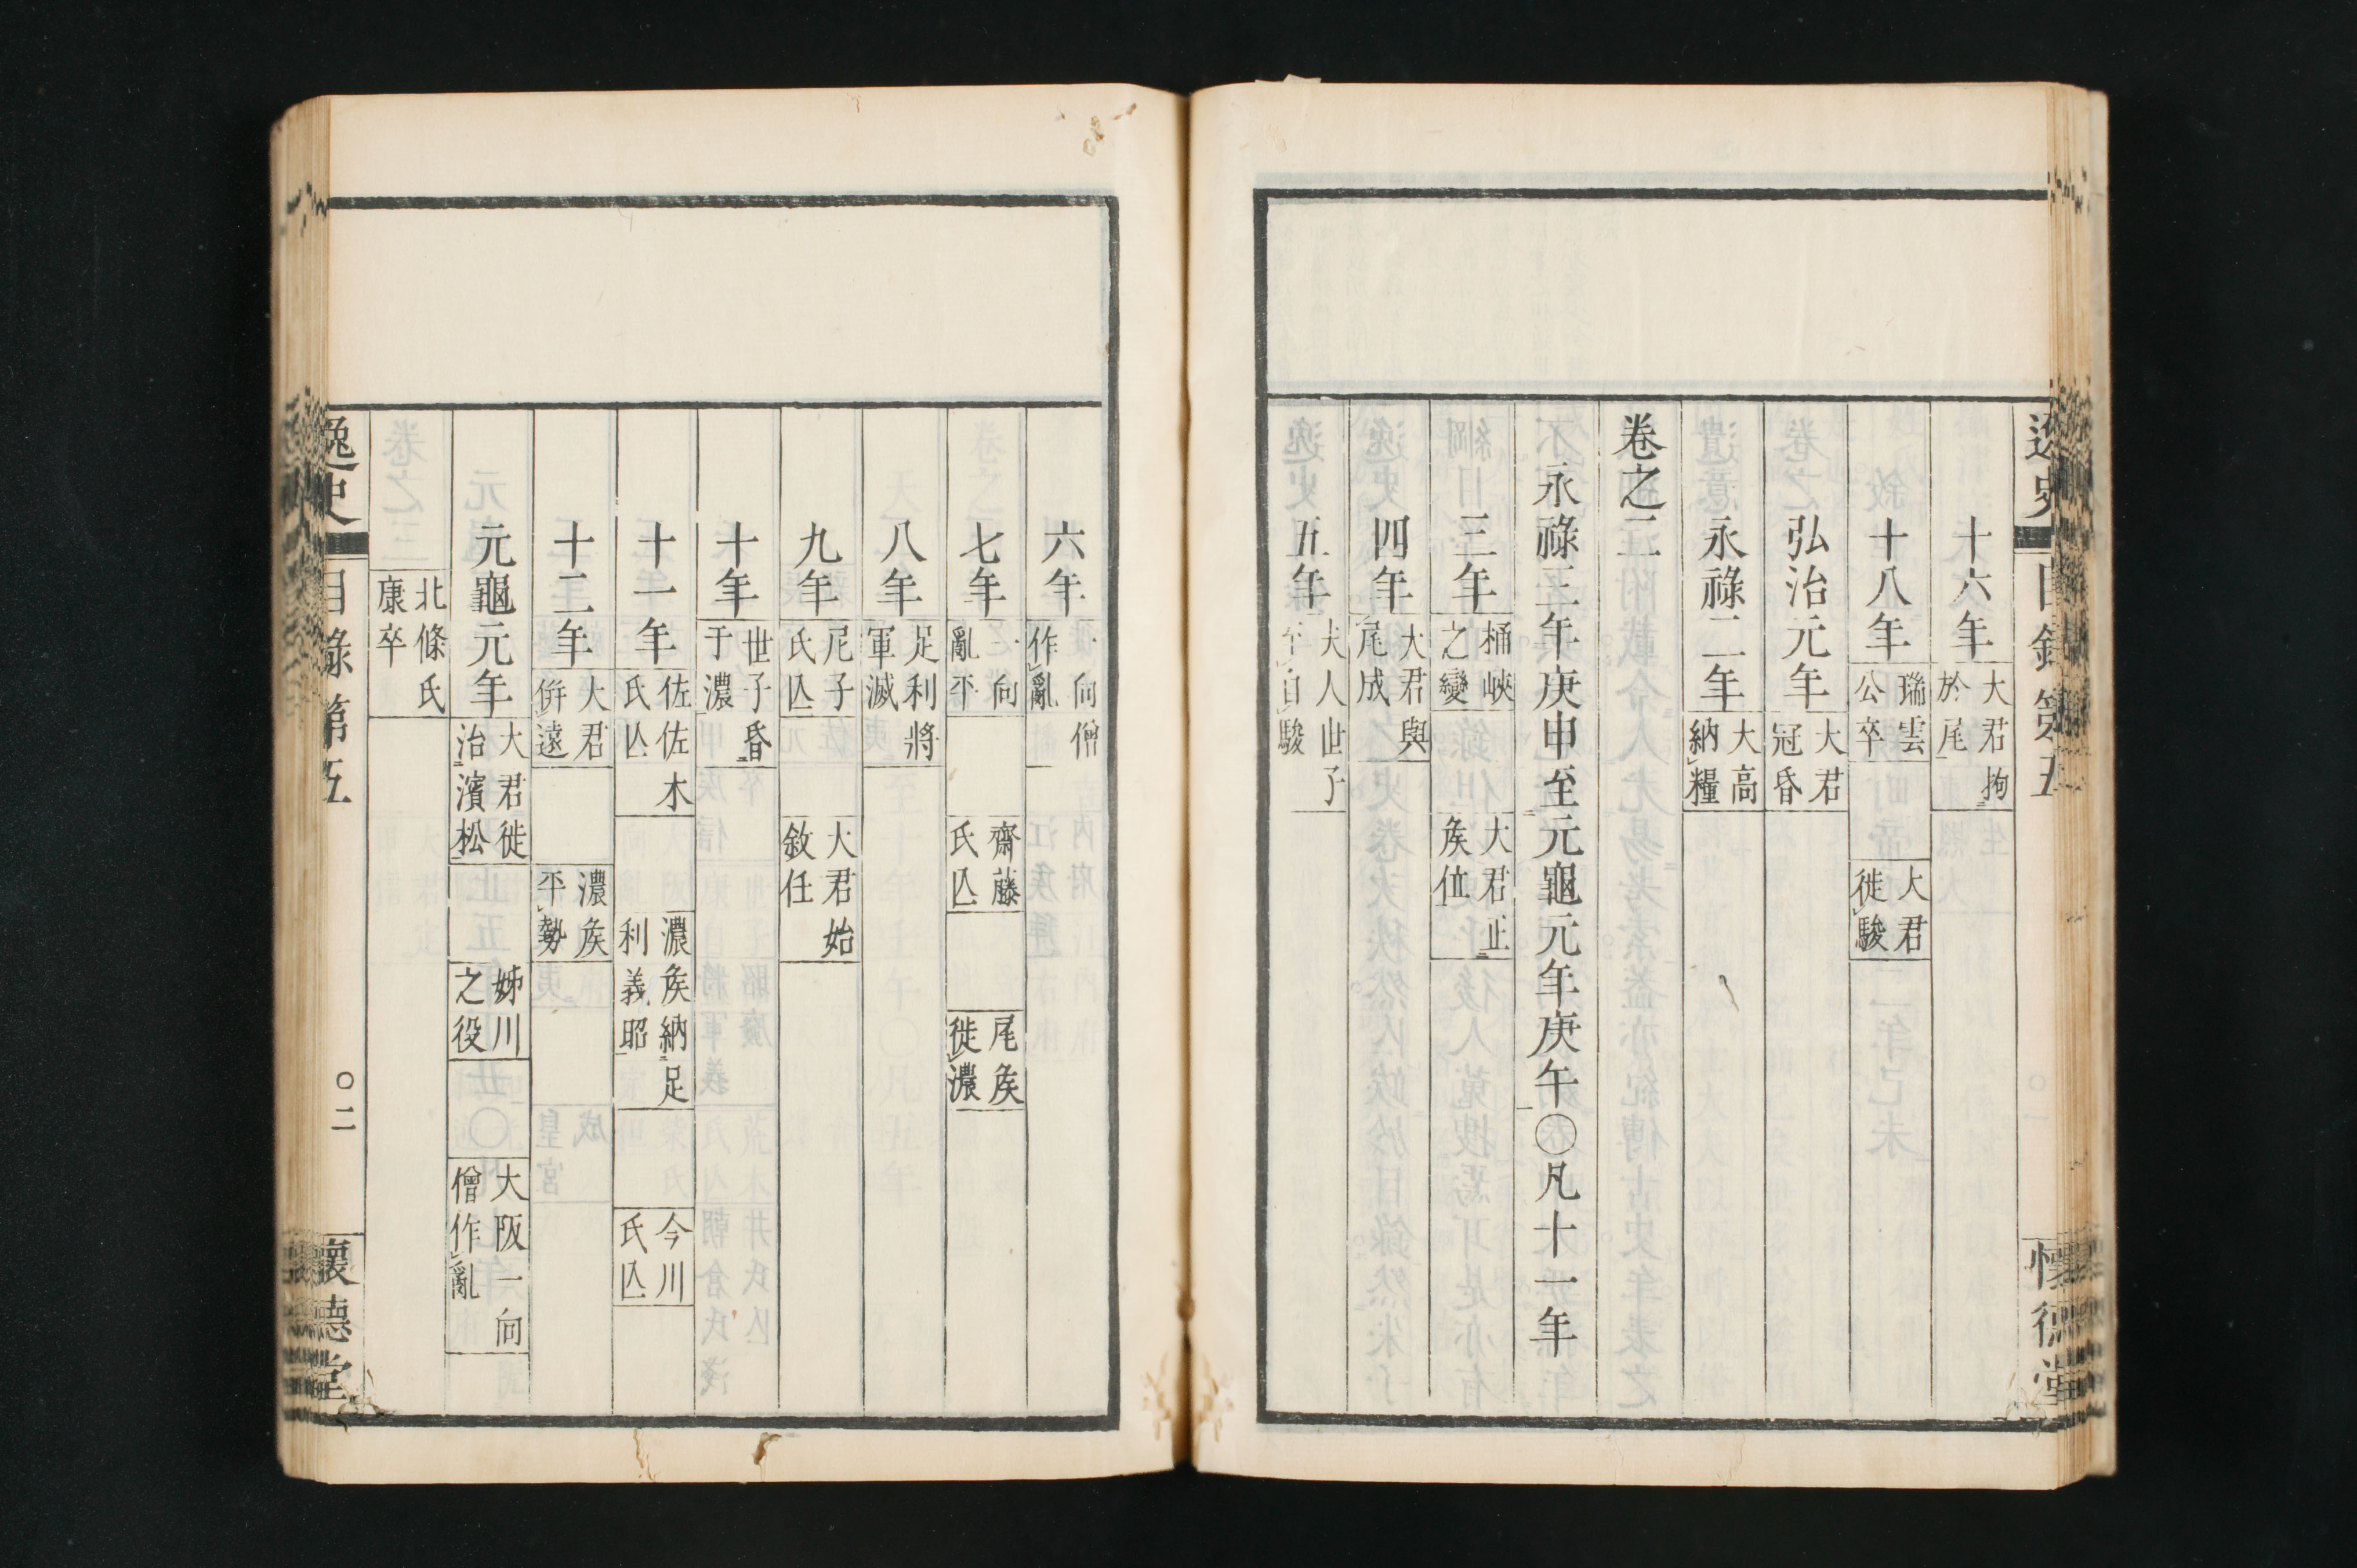 十六年 大君拘於尾
十八年 瑞雲公卒 大君徙駿
弘治元年 大君冠昏
永祿二年 大高納糧
卷之二
永祿三年庚申至元龜元年庚午〇凡十一年
三年 桶峽之變 大君正矦位
四年 大君與尾成
五年 夫人世子至自駿
六年 一向僧作亂
七年 一向亂平 齋藤氏亾 尾矦徙濃
八年 足利將軍滅
九年 尼子氏亾 大君始敘任
十年 世子昏于濃
十一年 佐佐木氏亾 濃矦納足利義昭 今川氏亾
十二年 大君併遠 濃矦平勢
元龜元年 大君徙治濱松 姊川之役 大阪一向僧作亂
北條氏康卒
逸史 目錄第五 〇二 懷德堂